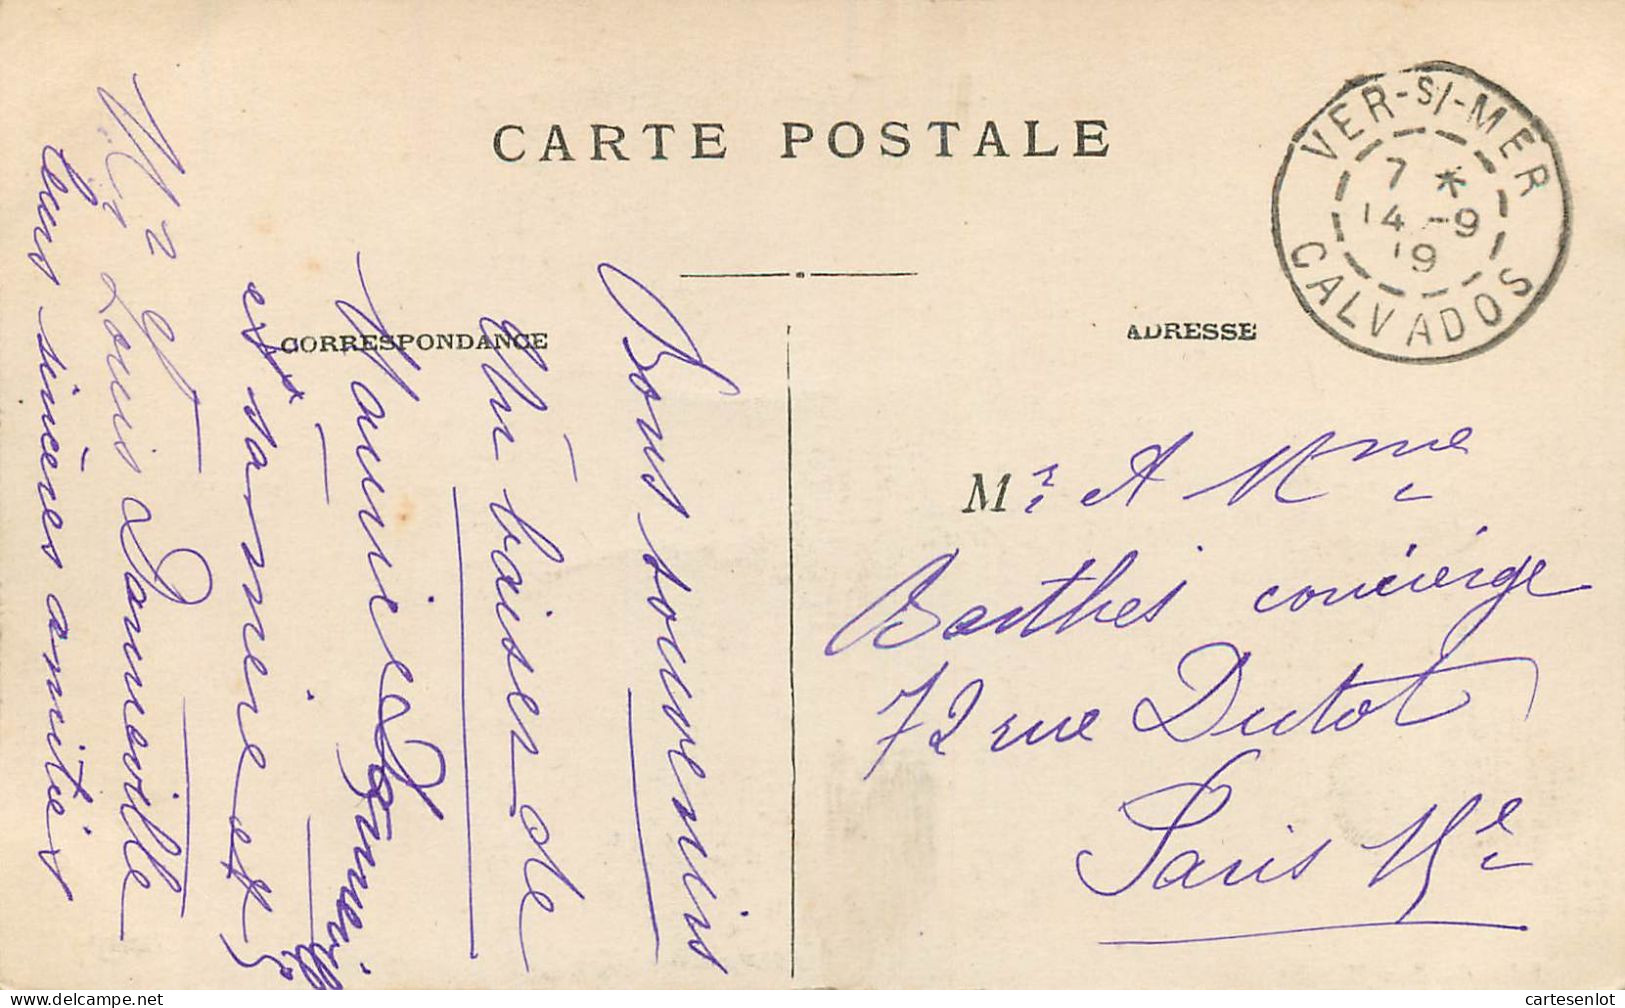 CARTE POSTALE
VER-S/-MER
7 *
14 -9
19
CALVADOS
CORRESPONDANCE
ADRESSE
Bons souvenirs
Un baiser de
Maurice Danneville
et sa mère et
Mr et
Me Louis Danneville
leurs sincères amitiés
Mr et Mme
Barthès concierge
72 rue Dutot
Paris 15e
cartesenlot